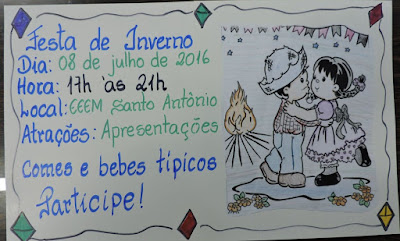 Festa de Inverno
Dia: 08 de julho de 2016
Hora: 17h às 21h
Local: EEEM Santo Antônio
Atrações: Apresentações
Comes e bebes típicos
Participe!